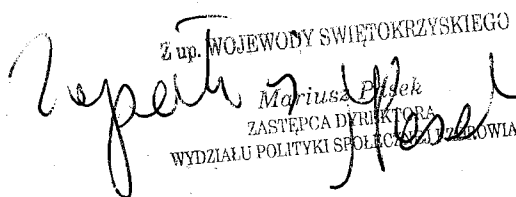 Z up. WOJEWODY ŚWIĘTOKRZYSKIEGO
Mariusz Pasek
ZASTĘPCA DYREKTORA
WYDZIAŁU POLITYKI SPOŁECZNEJ I ZDROWIA